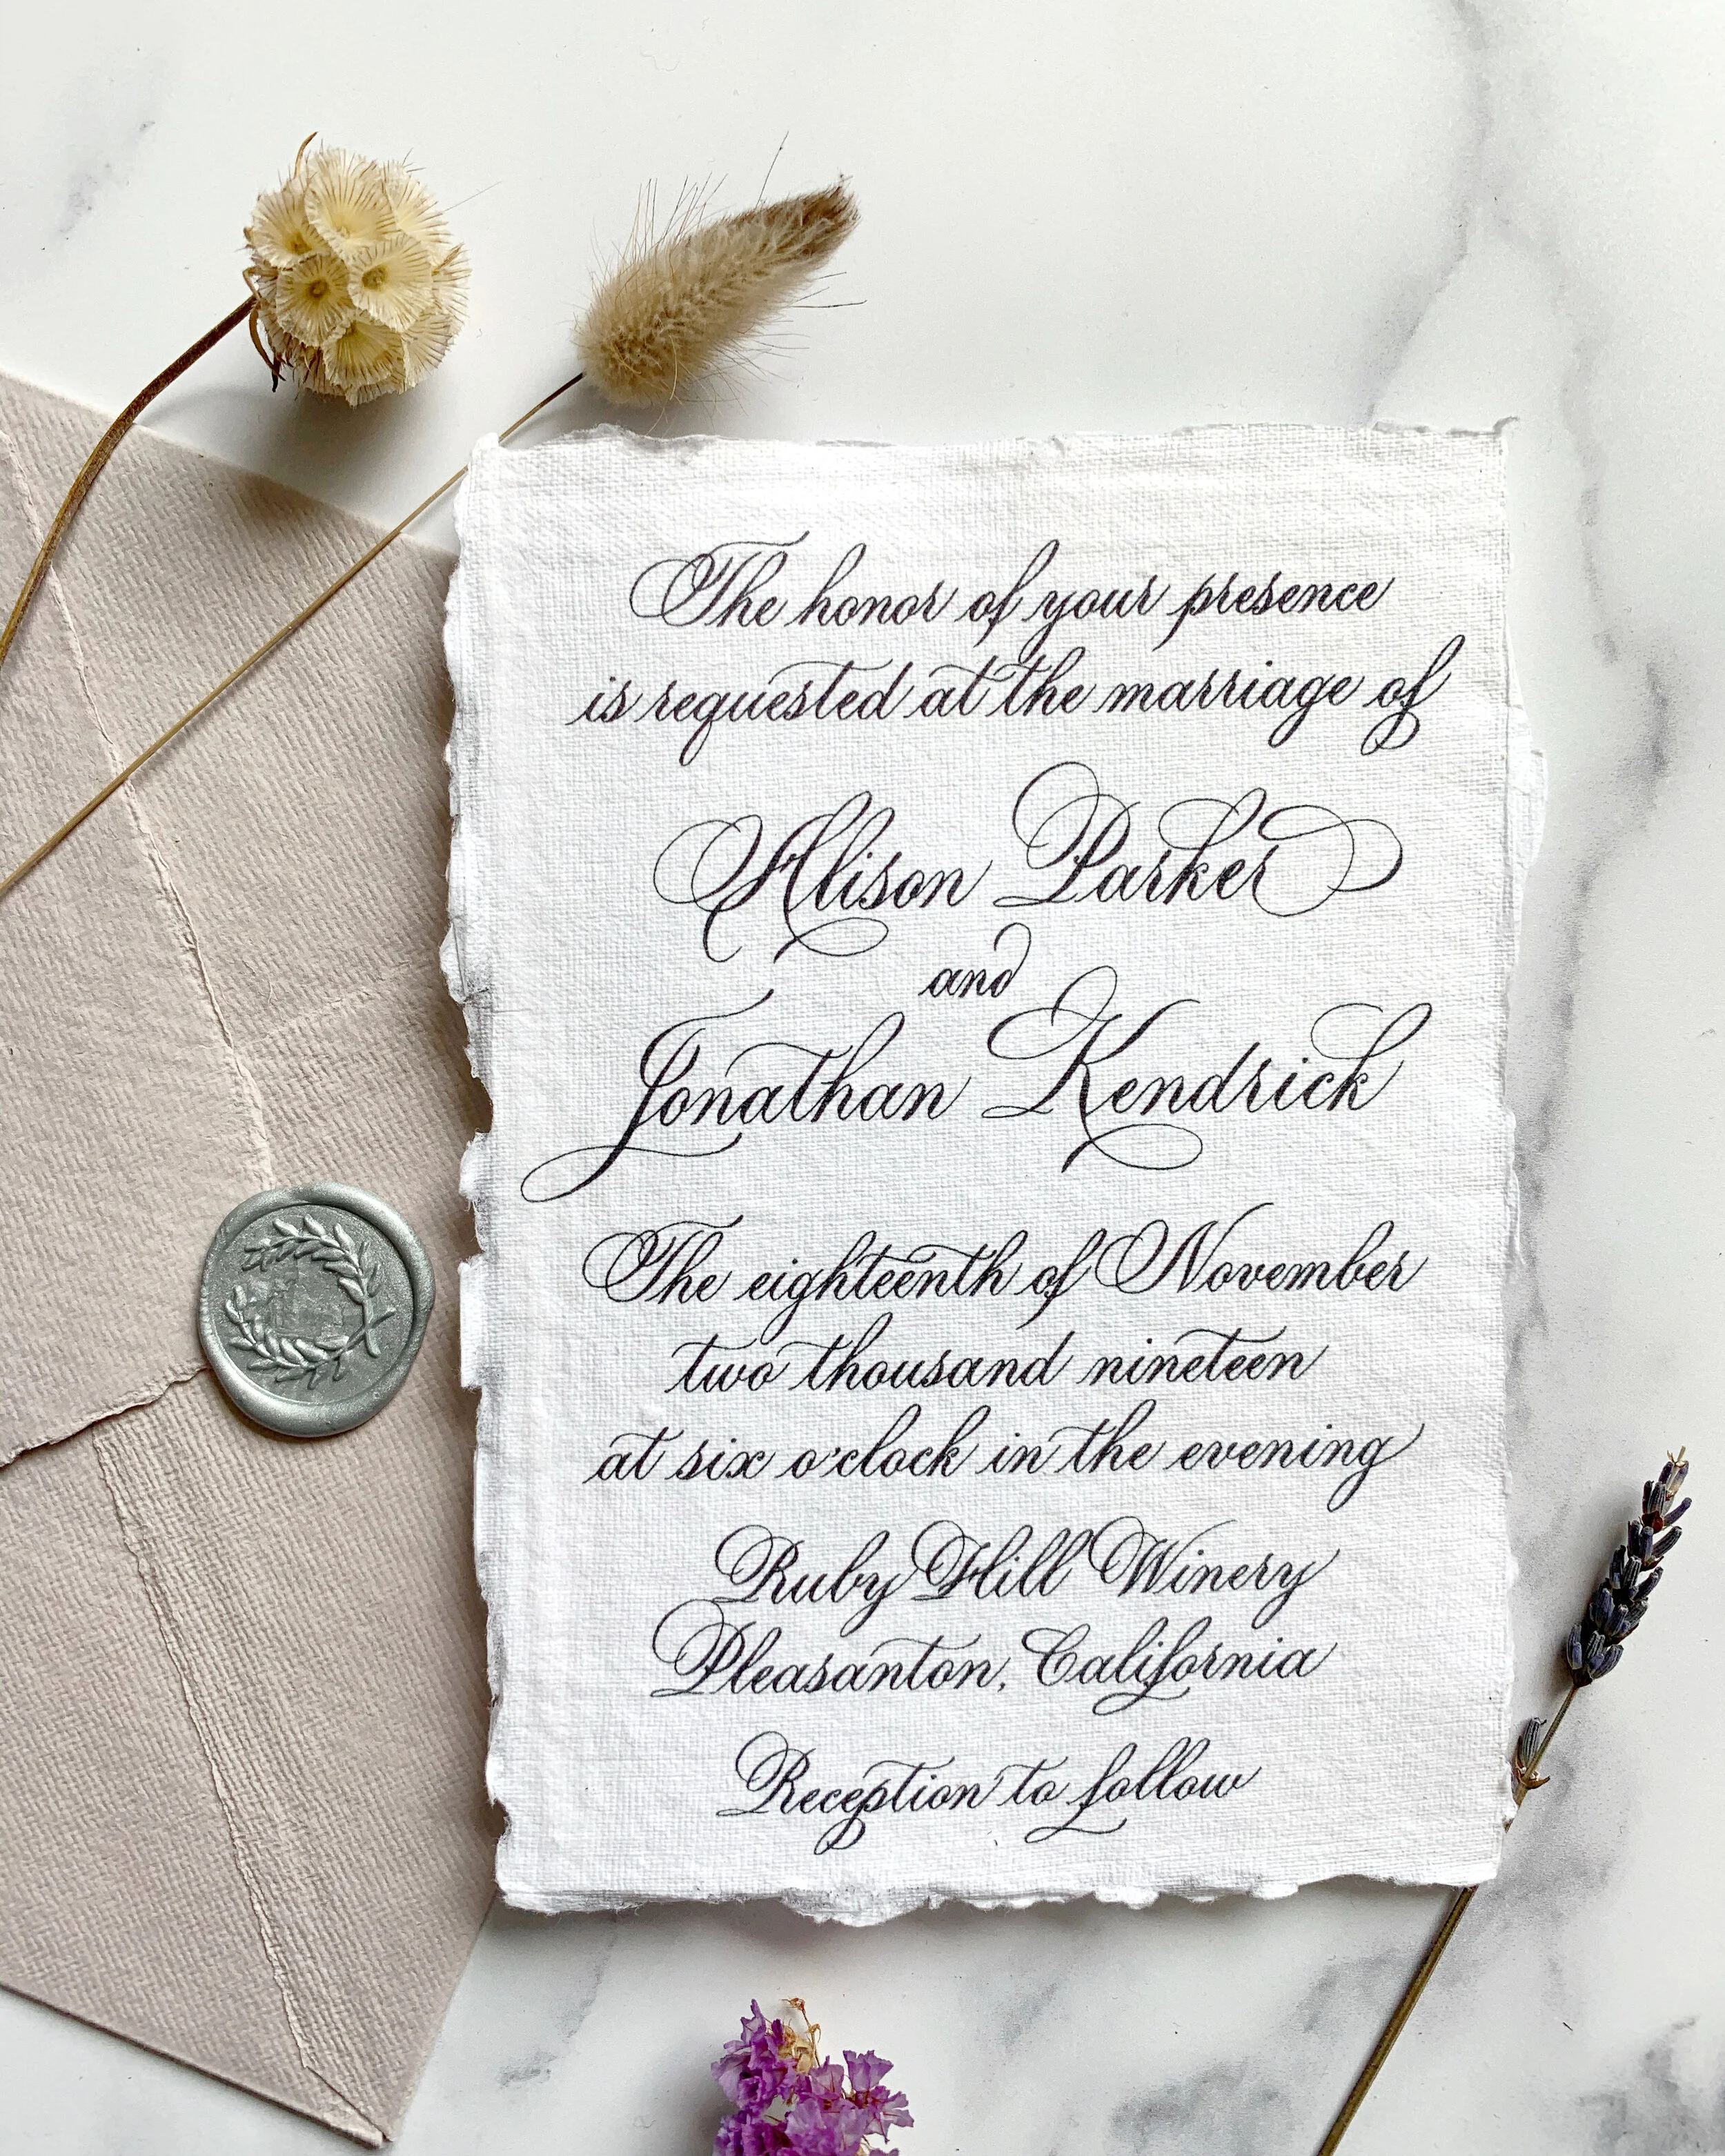 The honor of your presence
is requested at the marriage of
Alison Parker
and
Jonathan Kendrick
The eighteenth of November
two thousand nineteen
at six o'clock in the evening
Ruby Hill Winery
Pleasanton, California
Reception to follow